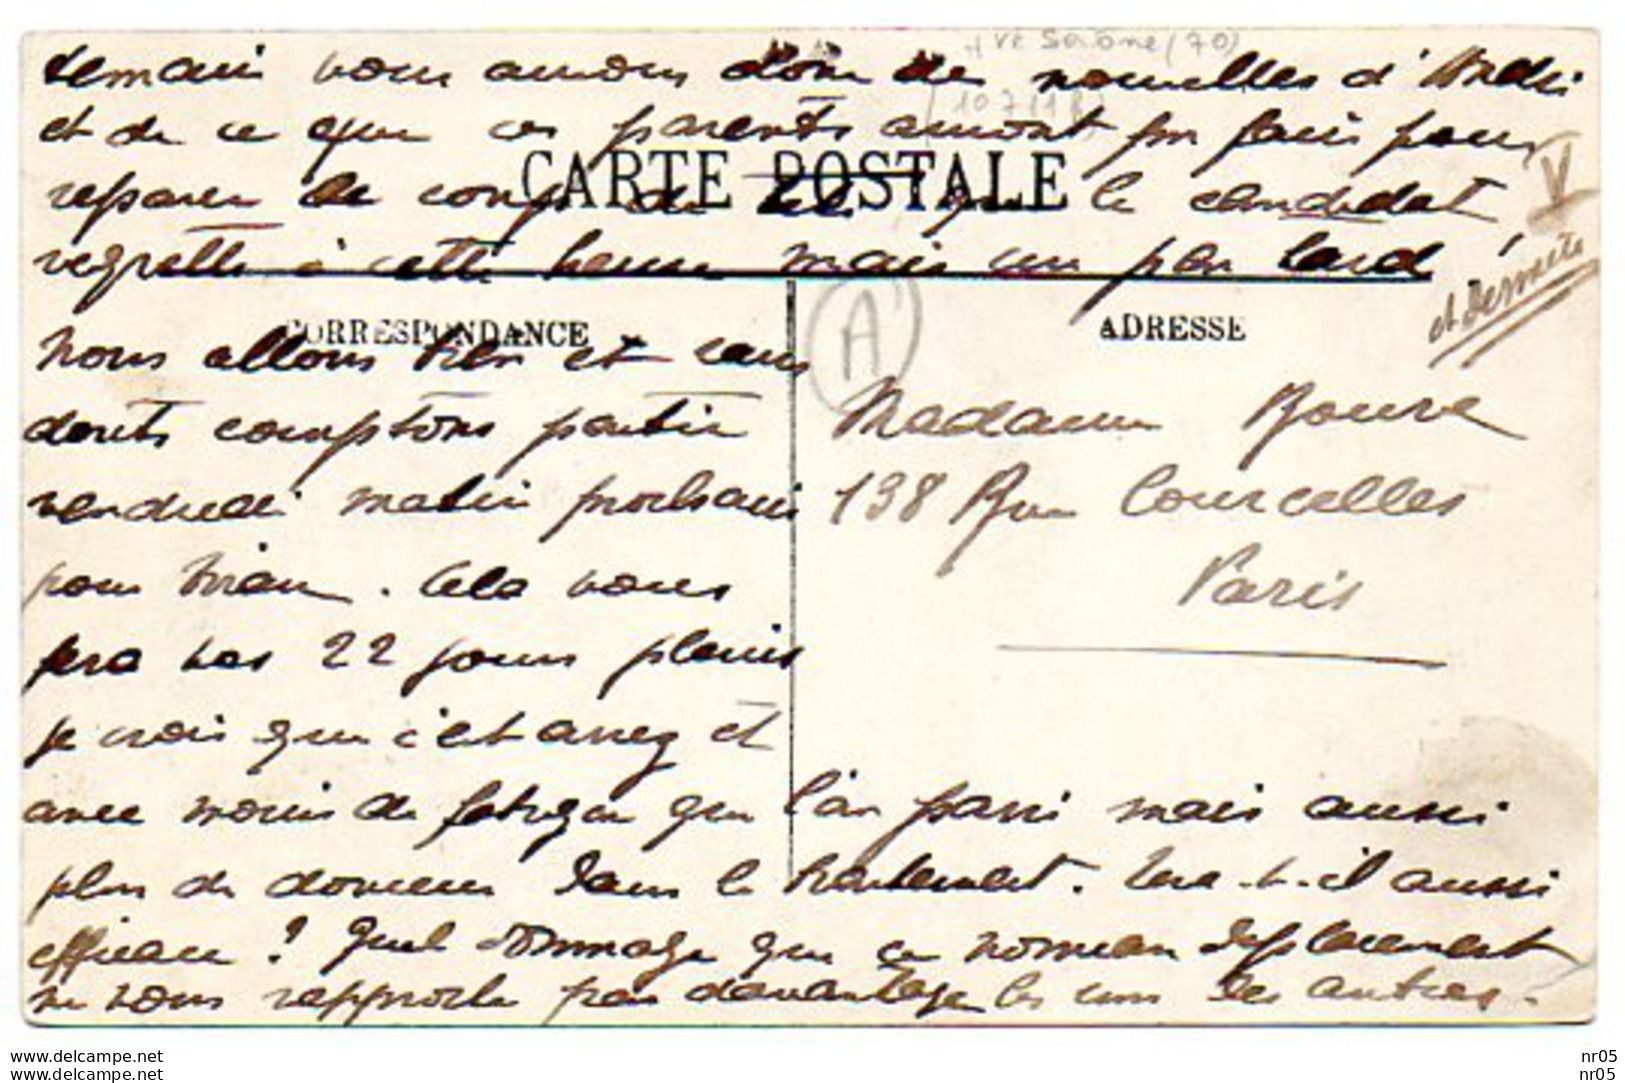 Hte Saône (70)
107 (18)
demain nous aurons donc des nouvelles d'André
et de ce que ces parents auront pu faire pour
CARTE POSTALE
reparer le coup de tête que le candidat
regrette à cette heure mais un peu tard !
V
et dernière
CORRESPONDANCE
ADRESSE
A
Nous allons bien et sans
doute comptons partir
vendredi matin prochain
pour . Cela nous
fera nos 22 jours pleins
je crois que c'est assez et
avec moins de fatigue que l'an passé mais aussi
plus de douceur dans le traitement. Sera-t-il aussi
efficace ? Quel dommage que ce nouveau déplacement
ne nous rapproche pas davantage les uns des autres.
Madame Bourre
138 Rue Courcelles
Paris
www.delcampe.net
www.delcampe.com
nr05
nr05